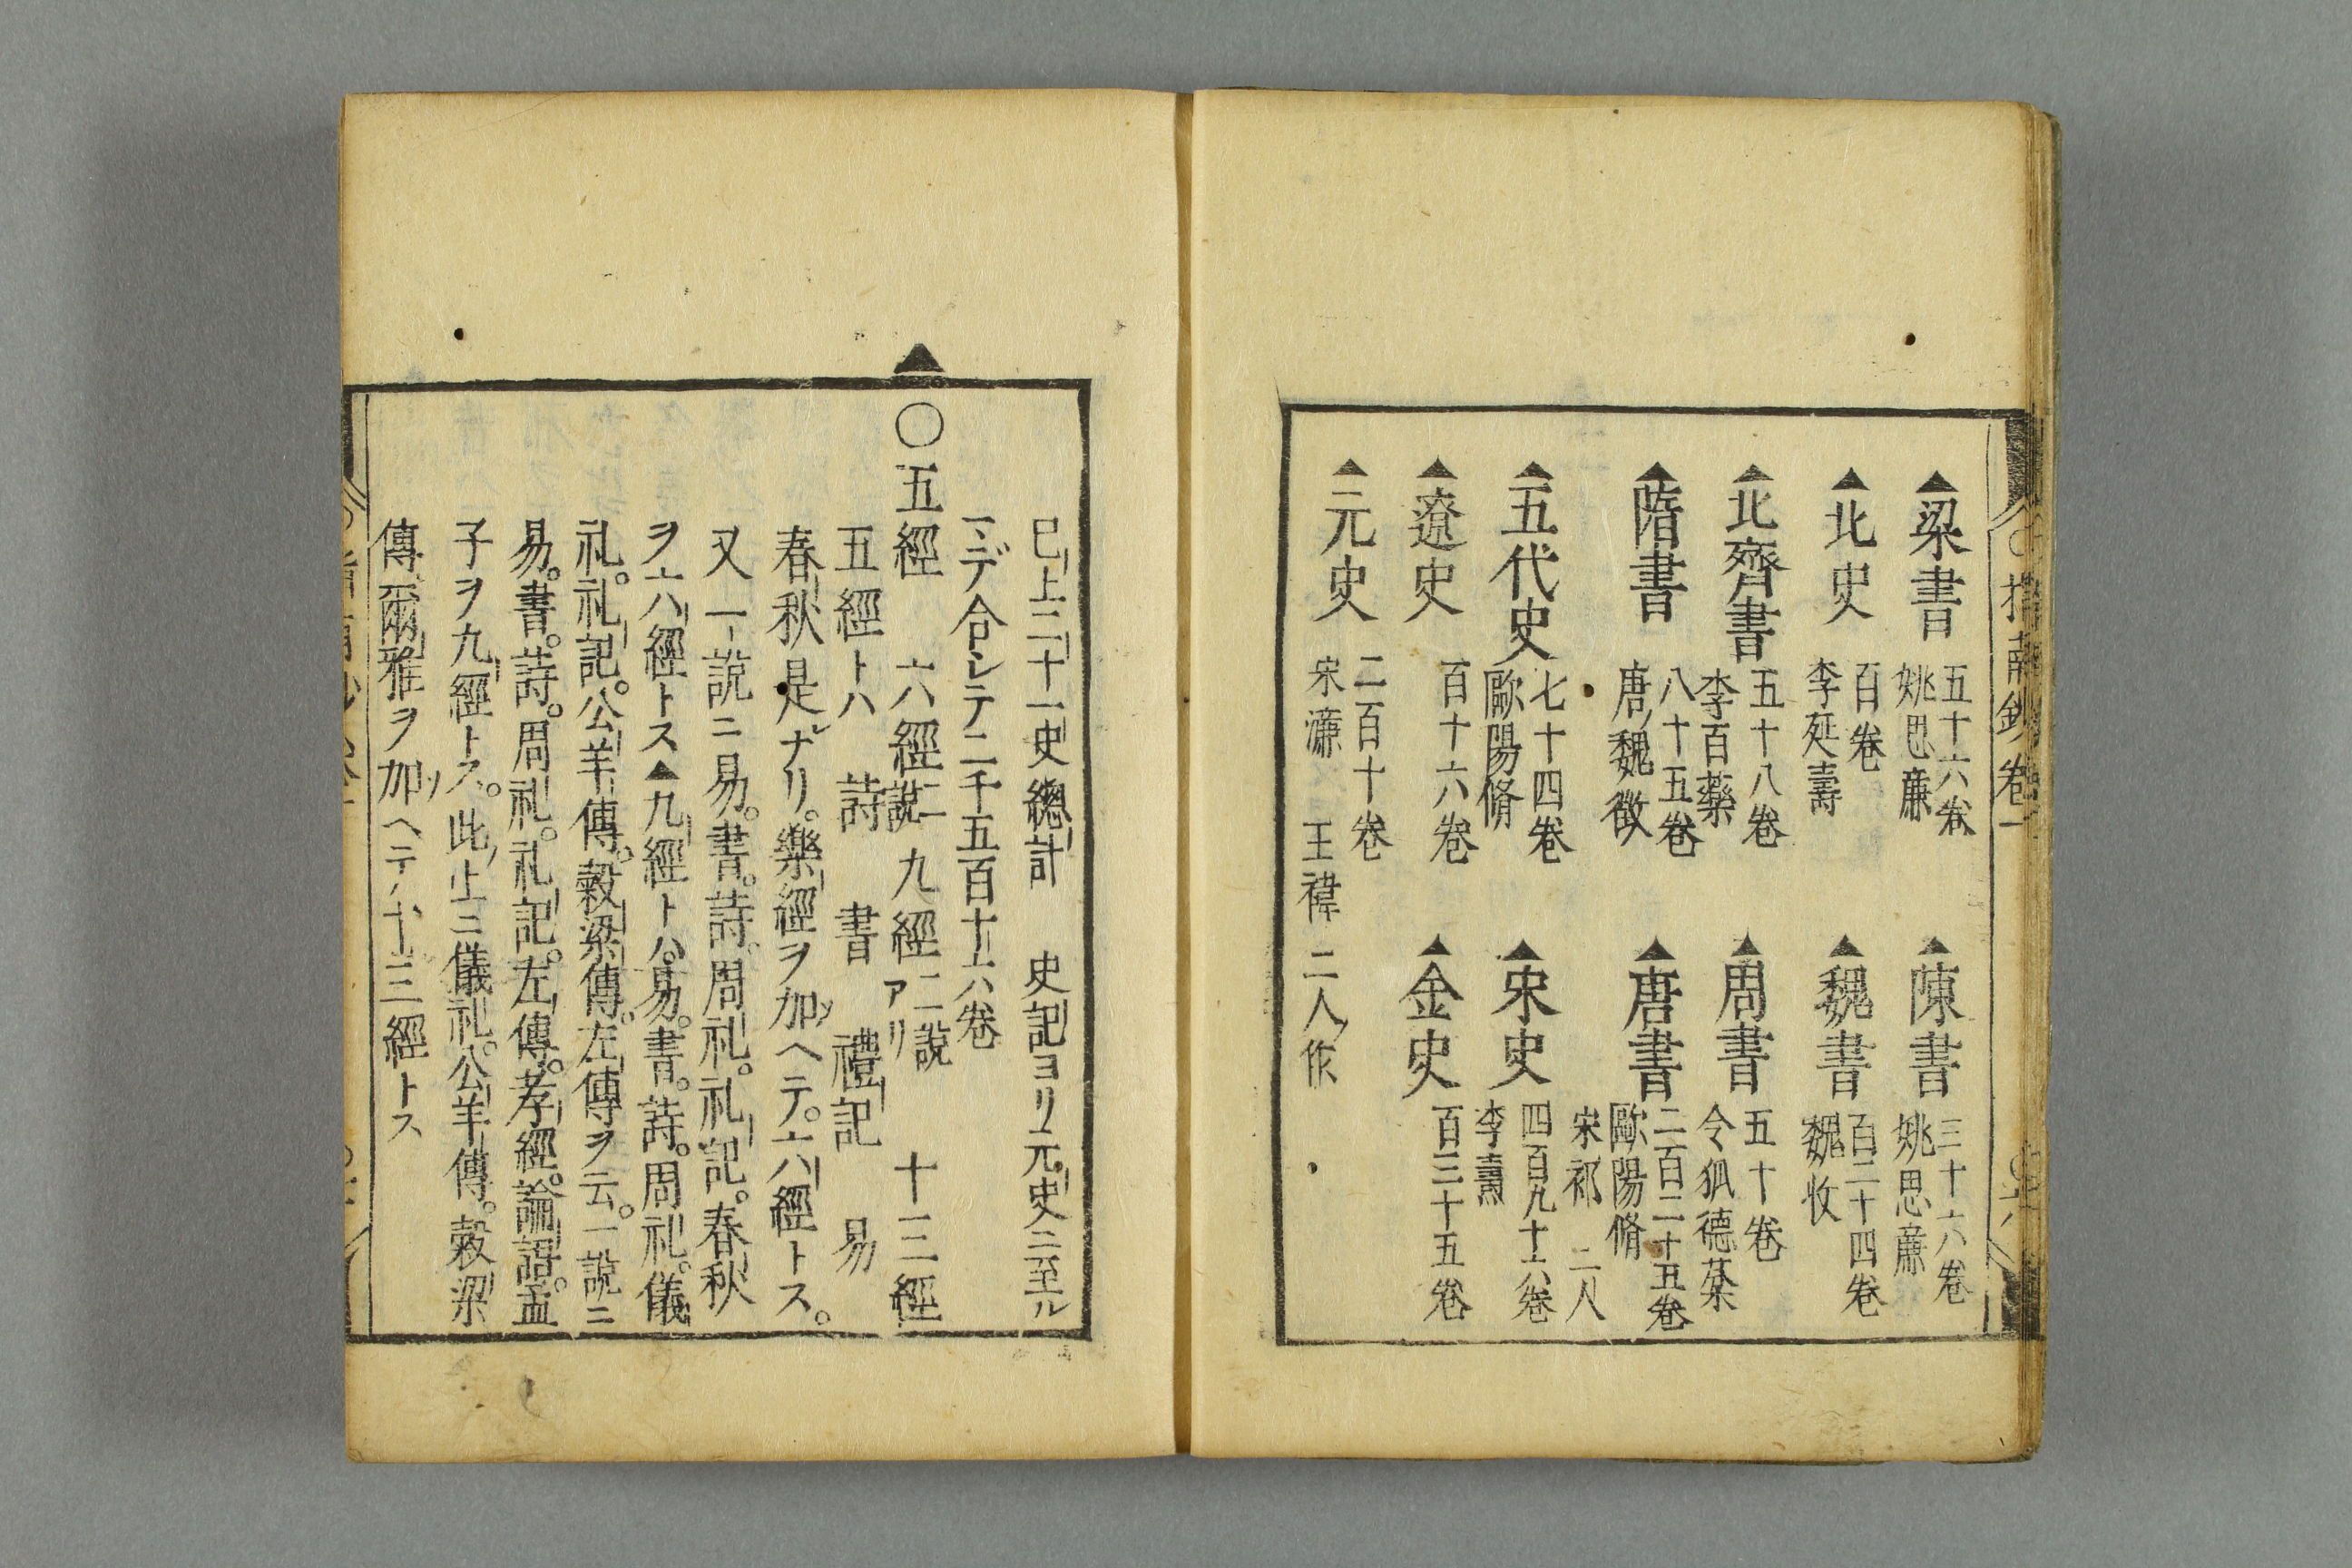 指南鈔卷一
▲梁書 五十六卷 姚思廉 ▲陳書 三十六卷 姚思廉
▲北史 百卷 李延壽 ▲魏書 百二十四卷 魏收
▲北齊書 五十八卷 李百藥 ▲周書 五十卷 令狐德棻
▲隋書 八十五卷 唐ノ魏徴 ▲唐書 二百二十五卷 歐陽脩 宋祁 二人
▲五代史 七十四卷 歐陽脩 ▲宋史 四百九十六卷 李燾
▲遼史 百十六卷 ▲金史 百三十五卷
▲元史 二百十卷 宋濂 王褘 二人ノ作
已上二十一史總計 史記ヨリ元史ニ至ル
マデ合シテ二千五百十六卷
▲○五經 六經二說 九經二說アリ 十三經
五經トハ 詩 書 禮記 易
春秋是レナリ。樂經ヲ加ヘテ。六經トス。
又一說ニ易。書。詩。周礼。礼記。春秋
ヲ六經トス▲九經トハ。易。書。詩。周礼。儀
礼。礼記。公羊傳。穀梁傳。左傳ヲ云。一說ニ
易。書。詩。周礼。礼記。左傳。孝經。論語。孟
子ヲ九經トス。此ノ上ニ儀礼。公羊傳。穀梁
傳。爾雅ヲ加ヘテ十三經トス